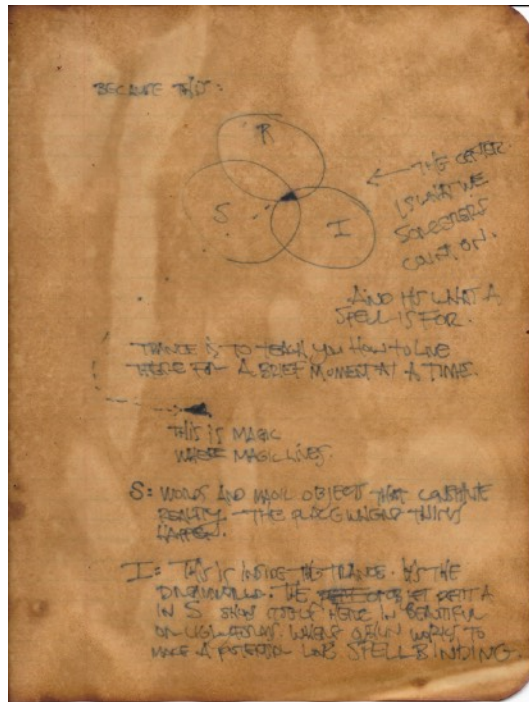 BECAUSE THIS:
R
S
I
THE CENTER
IS WHAT WE
SORCERERS
COUNT ON.
AND IT'S WHAT A
SPELL IS FOR.
TRANCE IS TO TEACH YOU HOW TO LIVE
THERE FOR A BRIEF MOMENT AT A TIME.
THIS IS MAGIC
WHERE MAGIC LIVES.
S: WORDS AND MAGIC OBJECTS THAT CONSTITUTE
REALITY - THE PLACE WHERE THINGS
HAPPEN.
I: THIS IS INSIDE THE TRANCE. IT'S THE
THE OBJET PETIT A
IN S SHOW HERE IN BEAUTIFUL
OR UGLY WHERE WORKS TO
MAKE A POTENTIAL SPELLBINDING.